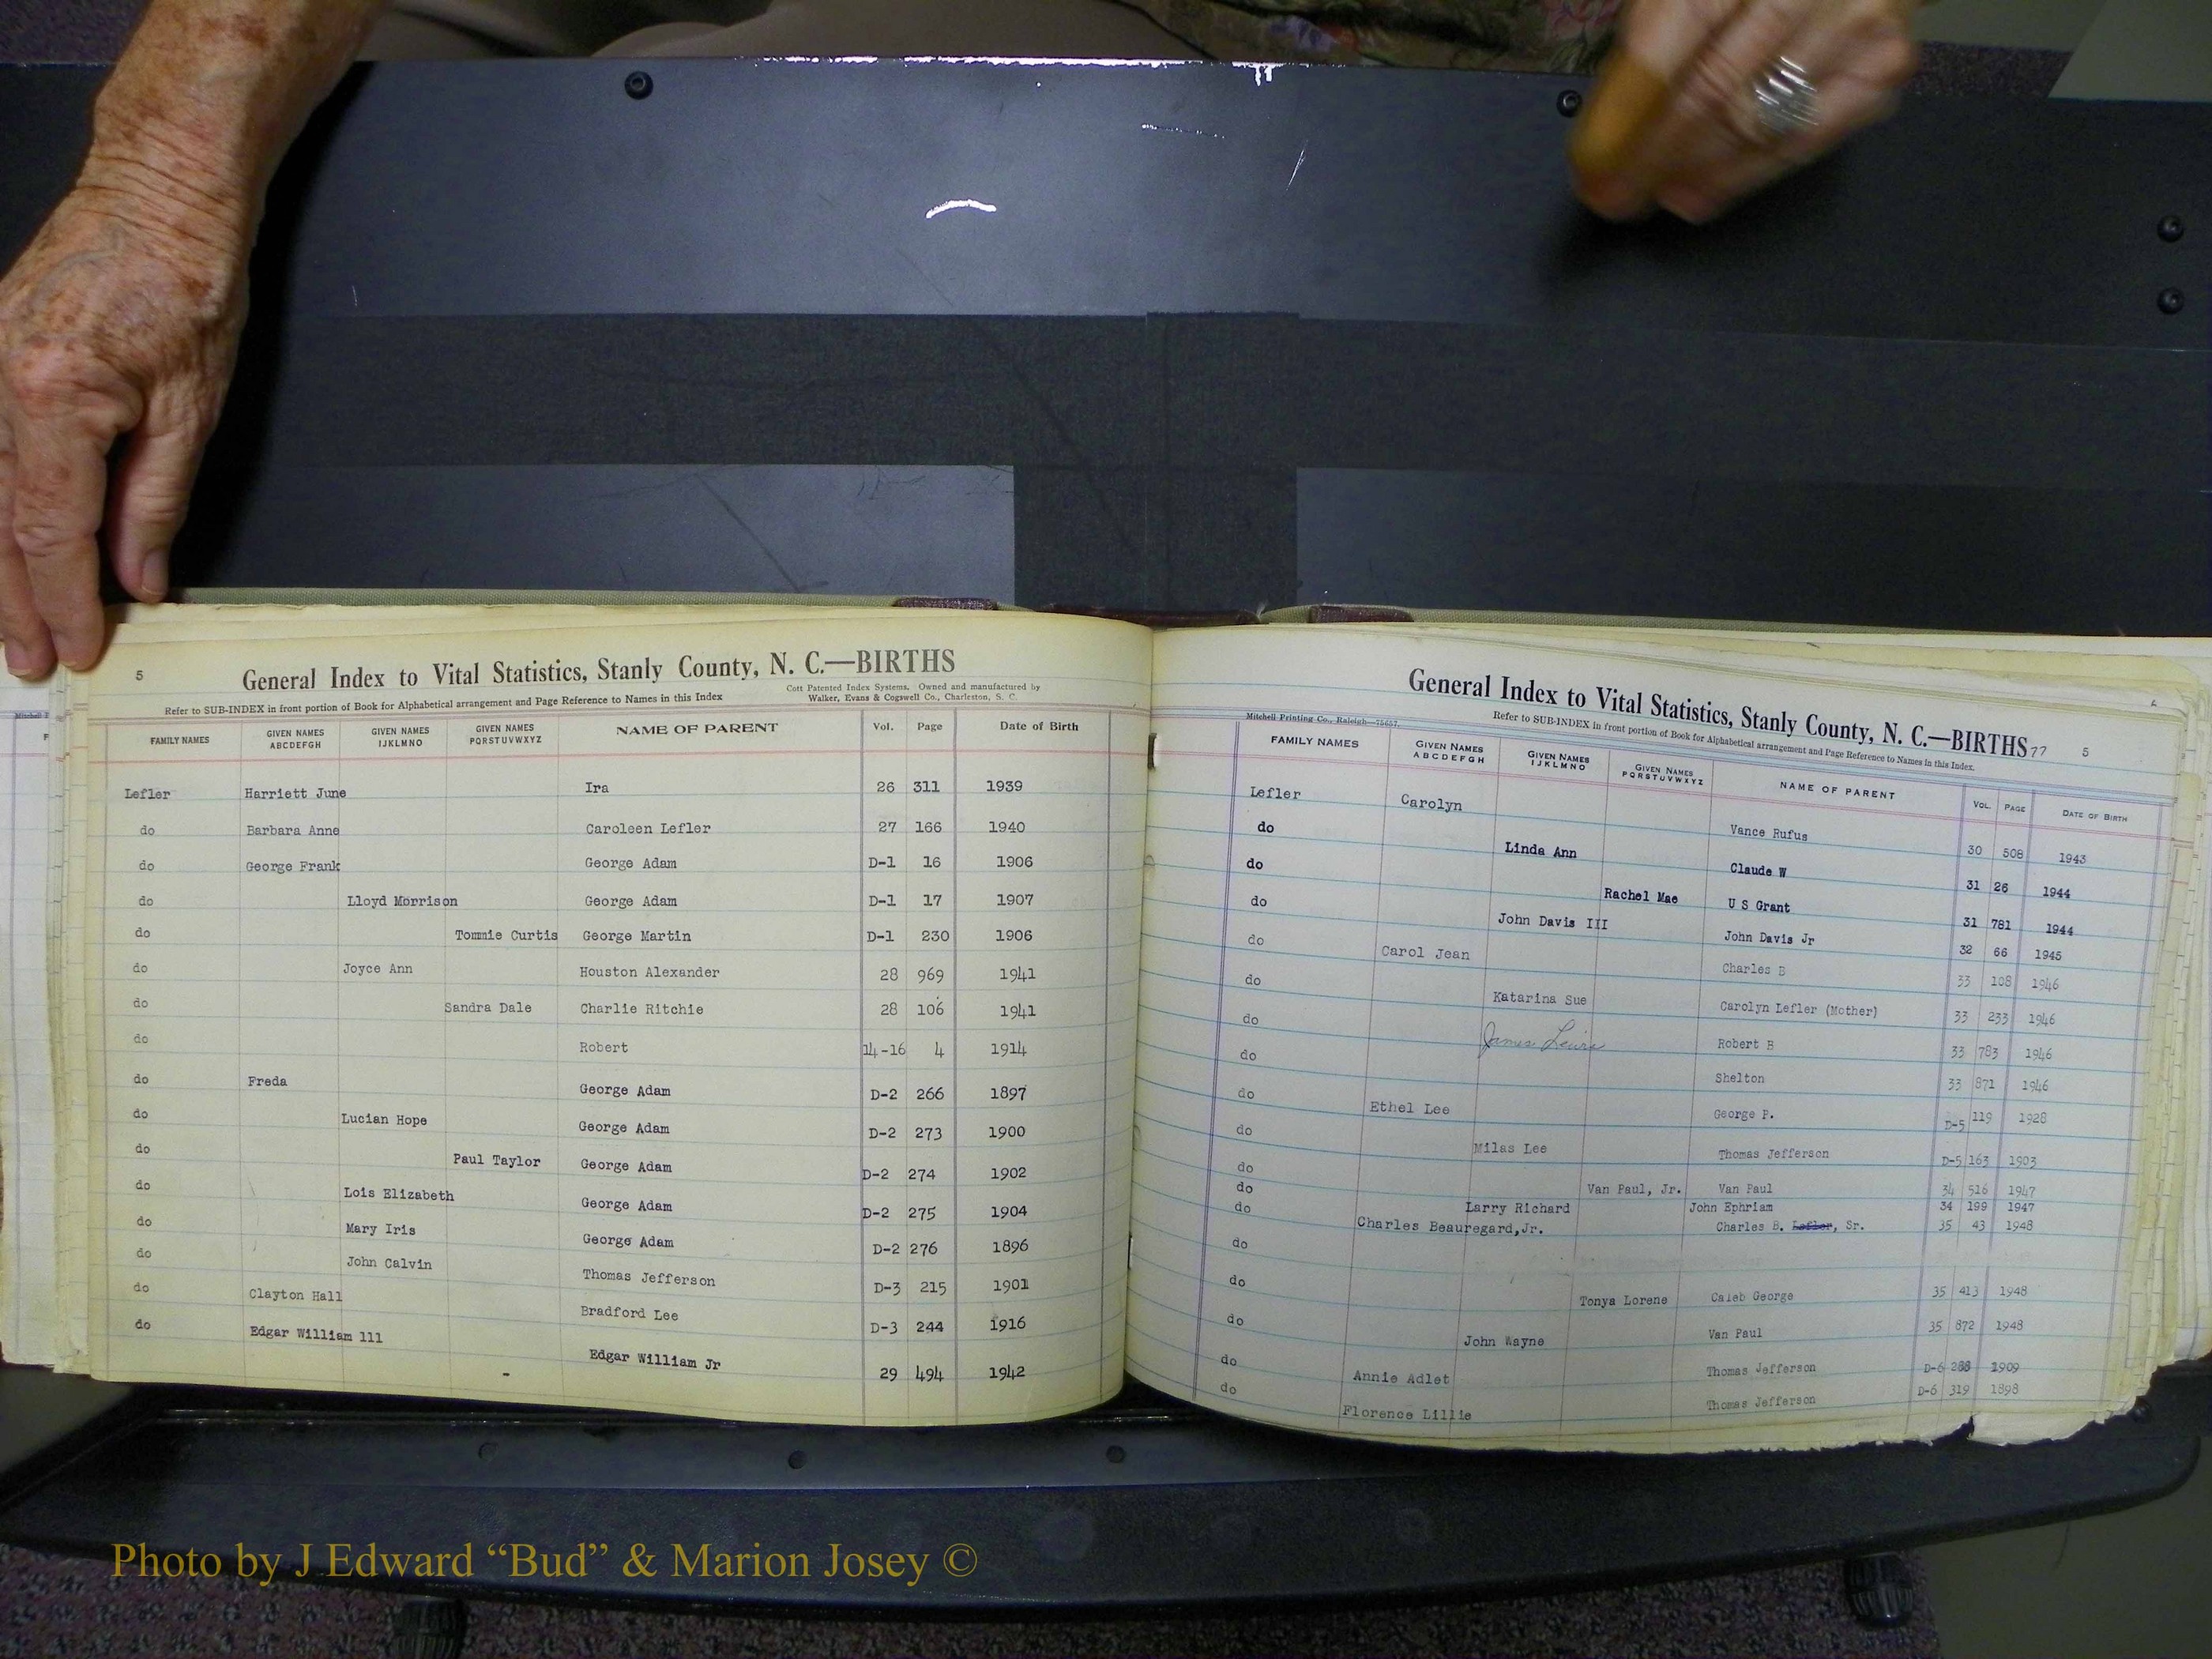 5
General Index to Vital Statistics, Stanly County, N. C.—BIRTHS
Refer to SUB-INDEX in front portion of Book for Alphabetical arrangement and Page Reference to Names in this Index
Cott Patented Index Systems, Owned and manufactured by
Walker, Evans & Cogswell Co., Charleston, S. C.
FAMILY NAMES GIVEN NAMES ABCDEFGH GIVEN NAMES IJKLMNO GIVEN NAMES PQRSTUVWXYZ NAME OF PARENT Vol. Page Date of Birth
Lefler Harriett June Ira 26 311 1939
do Barbara Anne Caroleen Lefler 27 166 1940
do George Frank George Adam D-1 16 1906
do Lloyd Morrison George Adam D-1 17 1907
do Tommie Curtis George Martin D-1 230 1906
do Joyce Ann Houston Alexander 28 969 1941
do Sandra Dale Charlie Ritchie 28 106 1941
do Robert 14-16 4 1914
do Freda George Adam D-2 266 1897
do Lucian Hope George Adam D-2 273 1900
do Paul Taylor George Adam D-2 274 1902
do Lois Elizabeth George Adam D-2 275 1904
do Mary Iris George Adam D-2 276 1896
do John Calvin Thomas Jefferson D-3 215 1901
do Clayton Hall Bradford Lee D-3 244 1916
do Edgar William 111 Edgar William Jr 29 494 1942
General Index to Vital Statistics, Stanly County, N. C.—BIRTHS 77 5
Mitchell Printing Co., Raleigh—75657.
Refer to SUB-INDEX in front portion of Book for Alphabetical arrangement and Page Reference to Names in this Index.
FAMILY NAMES GIVEN NAMES ABCDEFGH GIVEN NAMES IJKLMNO GIVEN NAMES PQRSTUVWXYZ NAME OF PARENT VOL. PAGE DATE OF BIRTH
Lefler Carolyn Vance Rufus 30 508 1943
do Linda Ann Claude W 31 26 1944
do Rachel Mae U S Grant 31 781 1944
do John Davis III John Davis Jr 32 66 1945
do Carol Jean Charles B 33 108 1946
do Katarina Sue Carolyn Lefler (Mother) 33 233 1946
do James Lewis Robert B 33 783 1946
do Shelton 33 871 1946
do Ethel Lee George P. D-5 119 1928
do Milas Lee Thomas Jefferson D-5 163 1903
do Van Paul, Jr. Van Paul 34 516 1947
do Larry Richard John Ephriam 34 199 1947
do Charles Beauregard, Jr. Charles B. Lefler, Sr. 35 43 1948
do
do Tonya Lorene Caleb George 35 413 1948
do John Wayne Van Paul 35 872 1948
do Annie Adlet Thomas Jefferson D-6 1909
do Florence Lillie Thomas Jefferson D-6 319 1898
Photo by J Edward “Bud” & Marion Josey ©